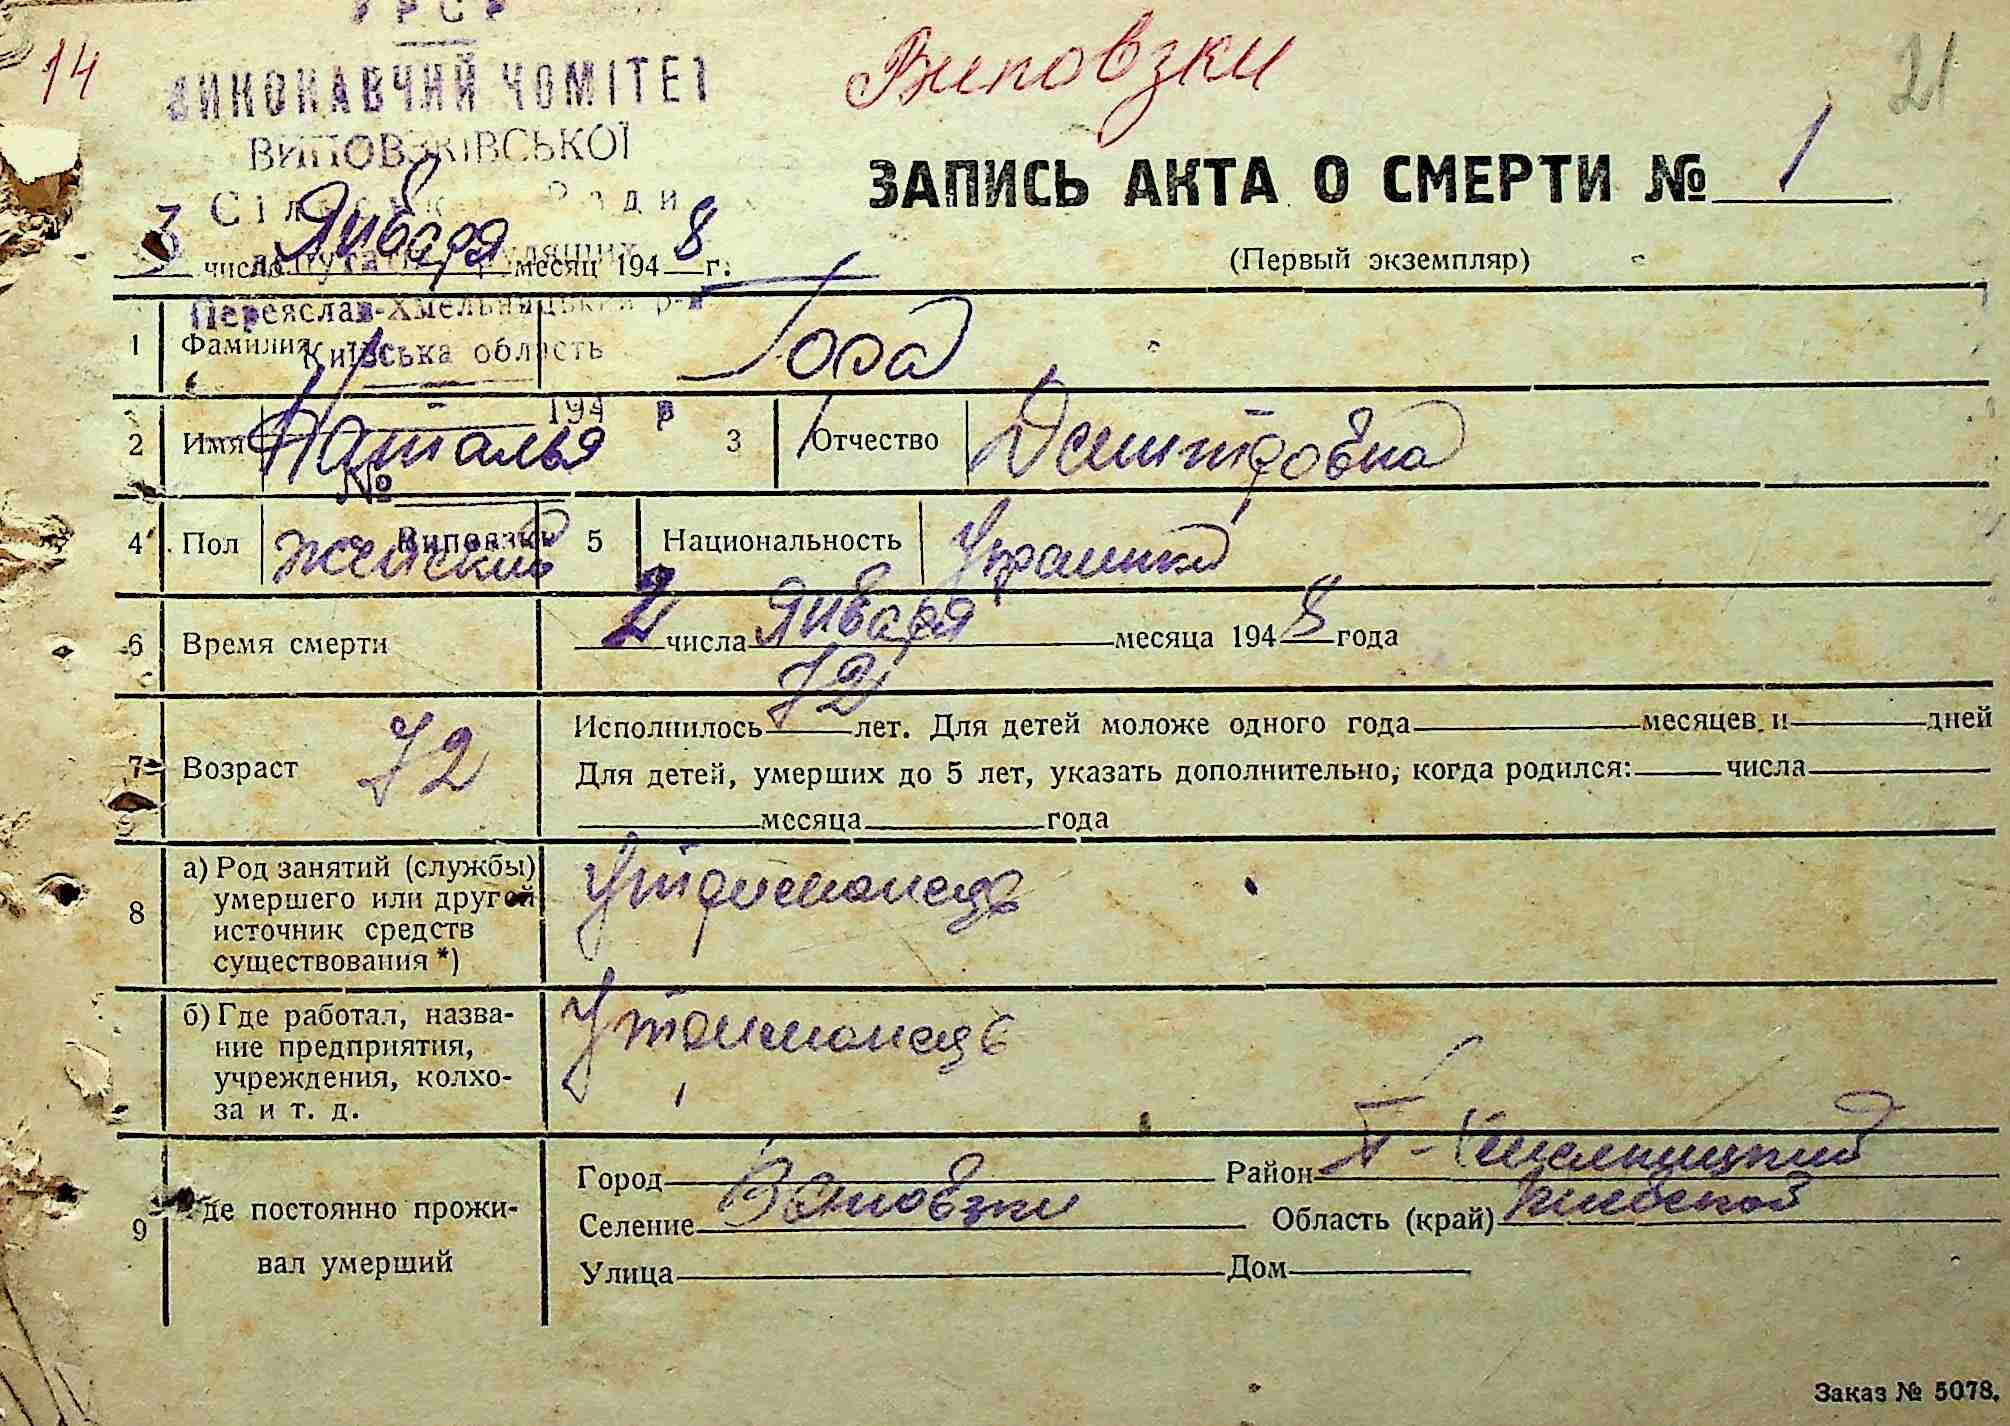 УРСР
14
Виповзки
21
ВИКОНАВЧИЙ КОМІТЕТ
ВИПОВЗКІВСЬКОЇ
ЗАПИСЬ АКТА О СМЕРТИ № 1
3 число Января месяц 1948 г.
(Первый экземпляр)
Переяслав-Хмельницький р-н
1 Фамилия Гога
Київська область
194 р
2 Имя Наталья 3 Отчество Дмитровна
№
Виповзки
4 Пол женский 5 Национальность Украинка
6 Время смерти 2 числа Января месяца 1948 года
7 Возраст 72
Исполнилось 72 лет. Для детей моложе одного года месяцев и дней
Для детей, умерших до 5 лет, указать дополнительно, когда родился: числа
месяца года
8 а) Род занятий (службы) умершего или другой источник средств существования *)
Утриманець
б) Где работал, название предприятия, учреждения, колхоза и т. д.
Утриманець
9 Где постоянно проживал умерший
Город Район П-Хмельницкий
Селение Виповзки Область (край) Киевской
Улица Дом
Заказ № 5078.